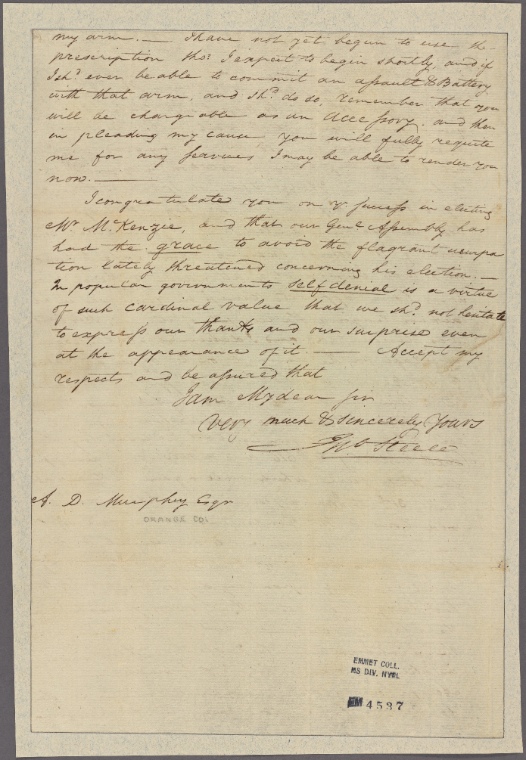 my arm. — I have not yet begun to use the
prescription tho' I expect to begin shortly, and if
I sh.d ever be able to commit an assault & Battery
with that arm, and sh.d do so, remember that you
will be chargeable as an Accessory, and then
in pleading my cause you will fully requite
me for any services I may be able to render you
now. —
I congratulated you on y.r success in electing
Mr. McKenzie, and that our Gen.l Assembly has
had the grace to avoid the flagrant usurpa
tion lately threatened concerning his election. —
In popular governments self denial is a virtue
of such cardinal value that we sh.d not hesitate
to express our thanks and our surprise even
at the appearance of it — Accept my
respects and be assured that
I am My dear sir
Very much & sincerely Yours
Jno Steele
A. D. Murphey Esqr
ORANGE CO.
EMMET COLL.
MS DIV. NYPL
EM 4537